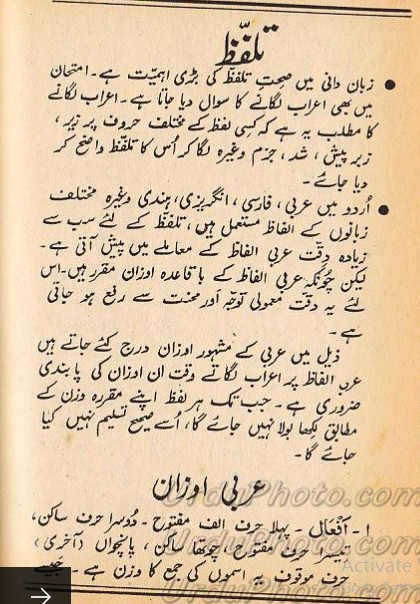 تلفّظ
● زبان دانی میں صحتِ تلفّظ کی بڑی اہمیّت ہے۔ امتحان
میں بھی اعراب لگانے کا سوال دیا جاتا ہے۔ اعراب لگانے
کا مطلب یہ ہے کہ کسی لفظ کے مختلف حروف پر زیر،
زبر پیش، شد، جزم وغیرہ لگا کر اُس کا تلفّظ واضح کر
دیا جائے۔
● اُردو میں عربی، فارسی، انگریزی، ہندی وغیرہ مختلف
زبانوں کے الفاظ مستعمل ہیں، تلفّظ کے لئے سب سے
زیادہ دِقّت عربی الفاظ کے معاملے میں پیش آتی ہے۔
لیکن چُونکہ عربی الفاظ کے باقاعدہ اوزان مقرر ہیں۔ اس
لئے یہ دِقّت معمولی توجّہ اور محنت سے رفع ہو جاتی
ہے۔
ذیل میں عربی کے مشہور اوزان درج کئے جاتے ہیں
عربی الفاظ پر اعراب لگاتے وقت ان اوزان کی پابندی
ضروری ہے۔ جب تک ہر لفظ اپنے مقررہ وزن کے
مطابق لکھا بولا نہیں جائے گا، اُسے صحیح تسلیم نہیں کیا
جائے گا۔
عربی اوزان
۱۔ اَفْعَال۔ پہلا حرف الف مفتوح۔ دُوسرا حرف ساکن،
تیسرا حرف مفتوح، چوتھا ساکن، پانچواں (آخری)
حرف موقوف یہ اسموں کی جمع کا وزن ہے۔ جیسے
UrduPhoto.com
UrduPhoto.com
UrduPhoto.com
Activate